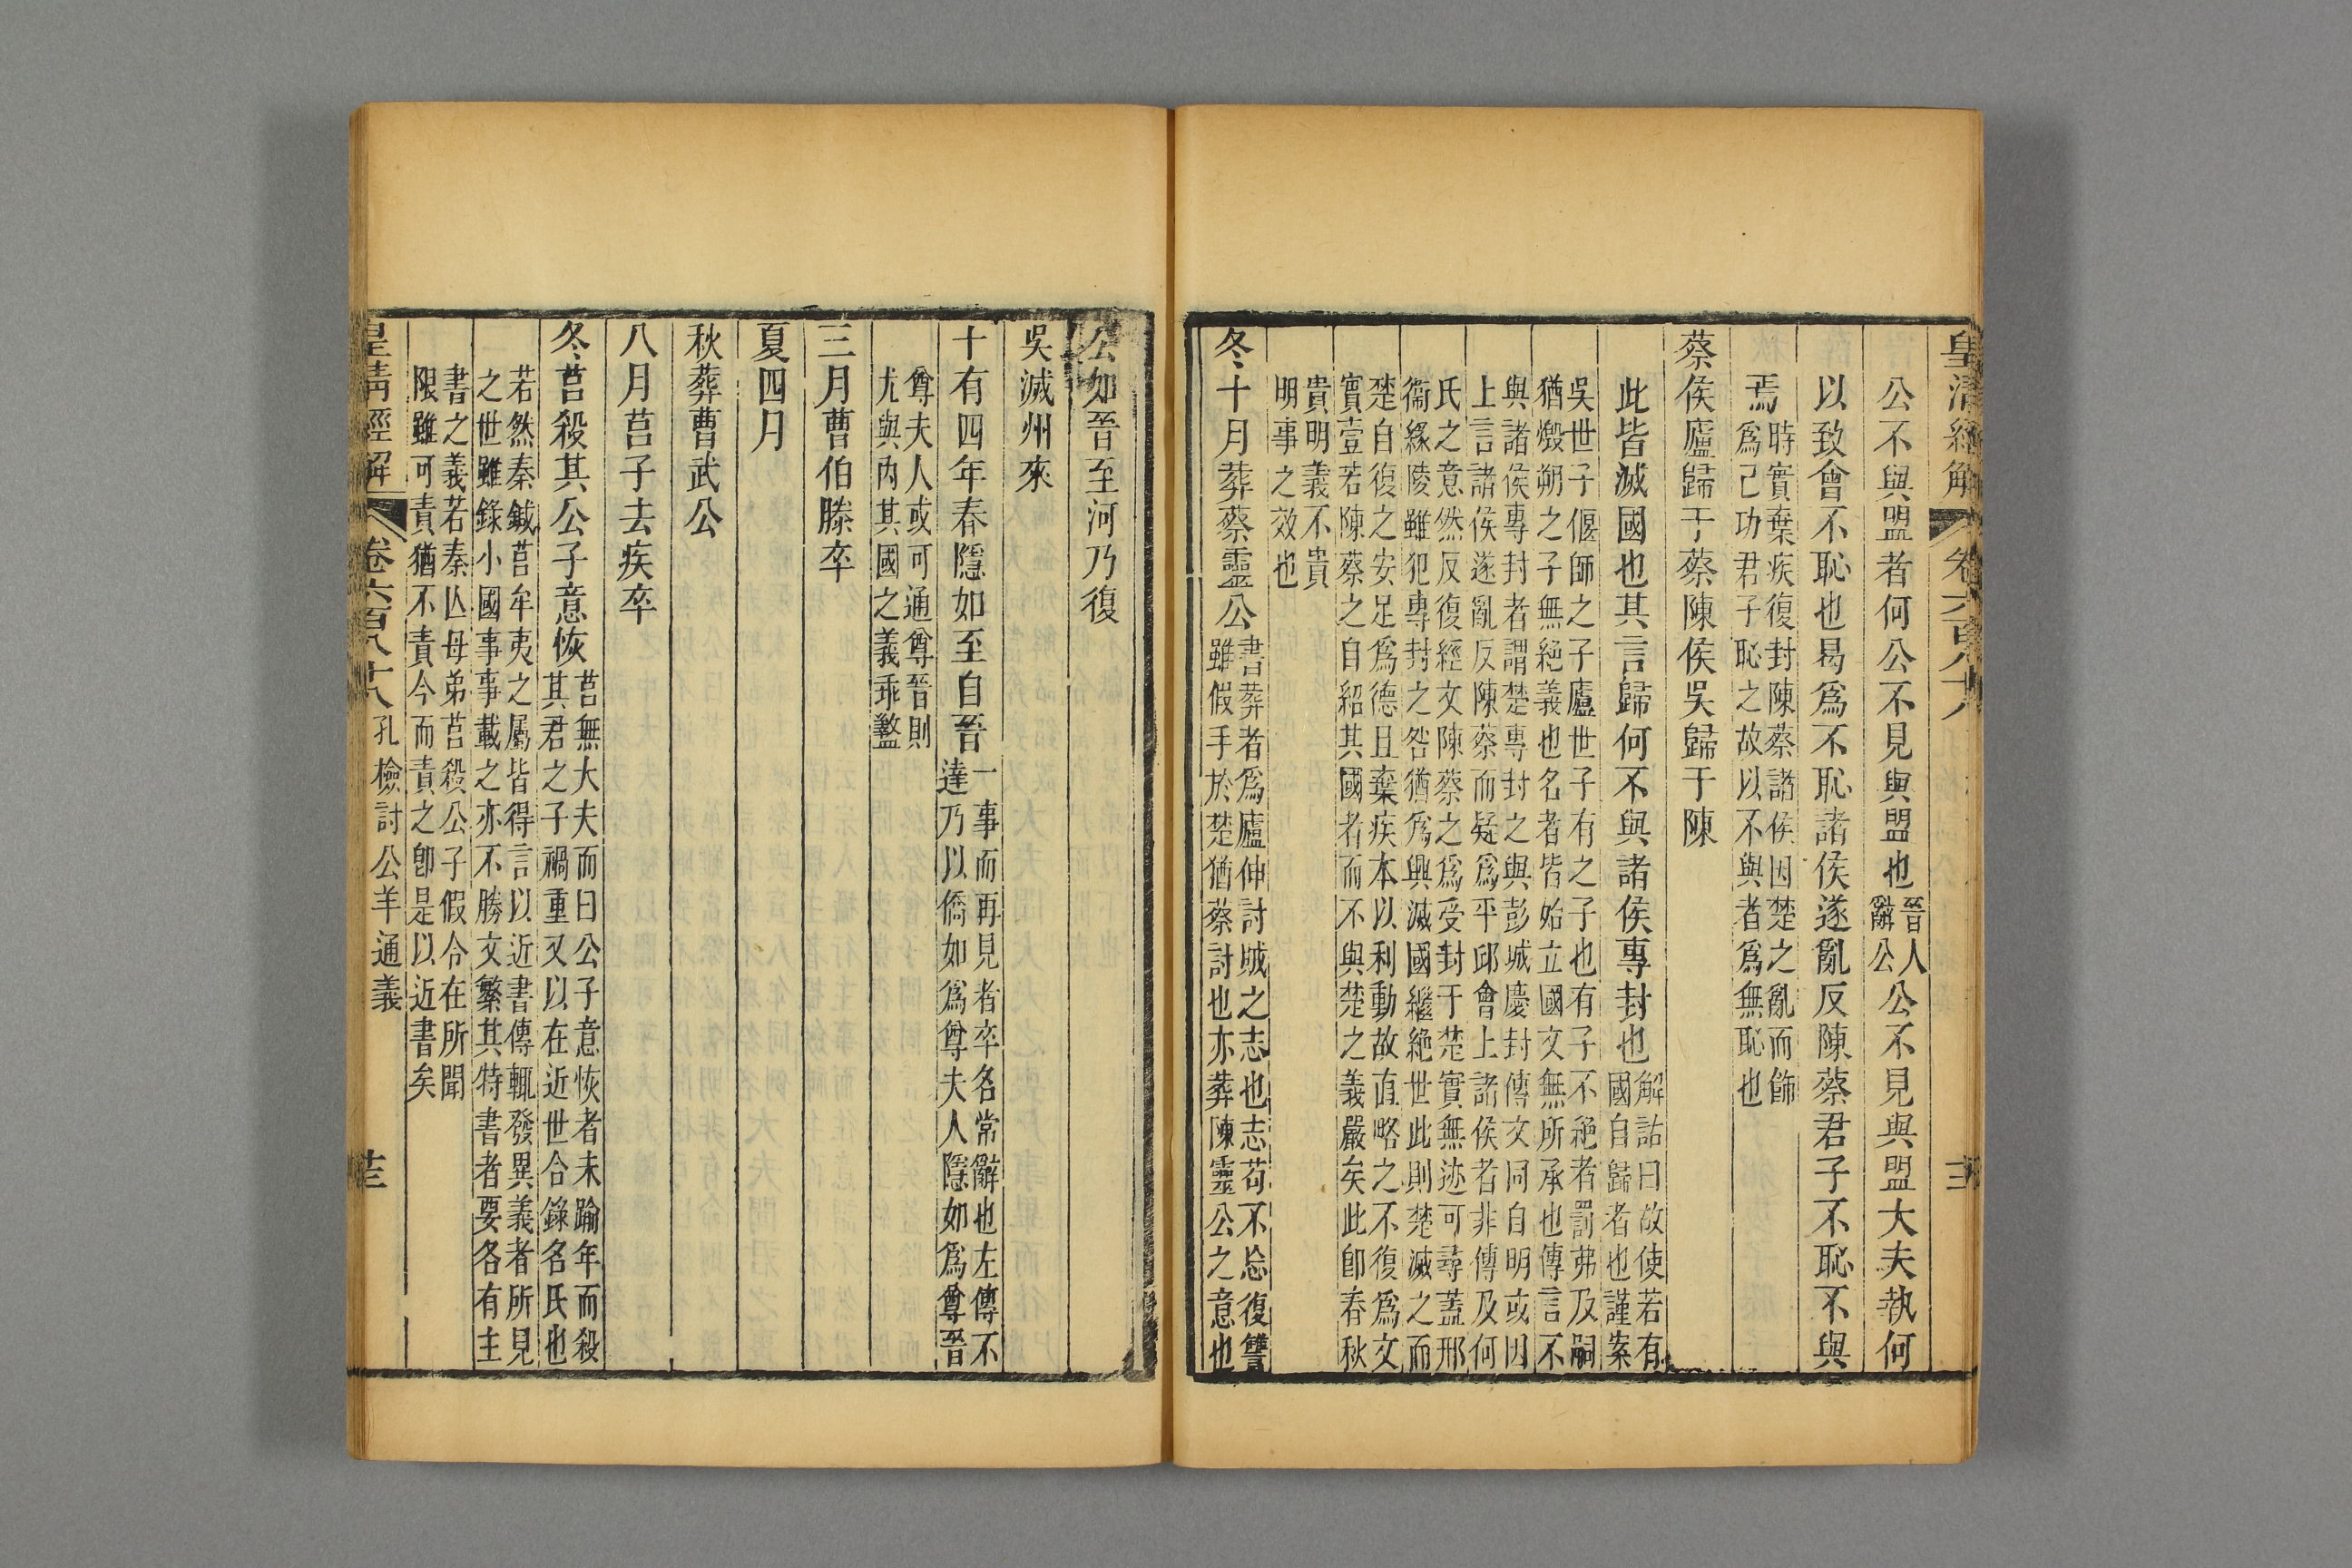 皇清經解 卷六百八十八 
公不與盟者何公不見與盟也晉人辭公公不見與盟大夫執何
以致會不恥也曷爲不恥諸侯遂亂反陳蔡君子不恥不與
焉時實棄疾復封陳蔡諸侯因楚之亂而飾
爲己功君子恥之故以不與者爲無恥也
蔡侯廬歸于蔡陳侯吳歸于陳
此皆滅國也其言歸何不與諸侯專封也解詁曰故使若有
國自歸者也謹案
吳世子偃師之子廬世子有之子也有子不絶者罰弗及嗣
猶燬朔之子無絶義也名者皆始立國文無所承也傳言不
與諸侯專封者謂楚專封之與彭城慶封傳文同自明或因
上言諸侯遂亂反陳蔡而疑爲平邱會上諸侯者非傳及何
氏之意然反復經文陳蔡之爲受封于楚實無迹可尋蓋邢
衞緣陵雖犯專封之咎猶爲興滅國繼絶世此則楚滅之而
楚自復之安足爲德且棄疾本以利動故直略之不復爲文
實壹若陳蔡之自紹其國者而不與楚之義嚴矣此卽春秋
貴明義不貴
明事之效也
冬十月葬蔡靈公書葬者爲廬伸討賊之志也志苟不忘復讐
雖假手於楚猶蔡討也亦葬陳靈公之意也
公如晉至河乃復
吳滅州來
十有四年春隱如至自晉一事而再見者卒名常辭也左傳不
達乃以僑如爲尊夫人隱如爲尊晉
尊夫人或可通尊晉則
尤與內其國之義乖盭
三月曹伯滕卒
夏四月
秋葬曹武公
八月莒子去疾卒
冬莒殺其公子意恢莒無大夫而曰公子意恢者未踰年而殺
其君之子禍重又以在近世合錄名氏也
若然秦鍼莒牟夷之屬皆得言以近書傳輒發異義者所見
之世雖錄小國事事載之亦不勝文繁其特書者要各有主
書之義若秦以母弟莒殺公子假令在所聞
限雖可責猶不責今而責之卽是以近書矣
皇清經解 卷六百八十八 孔檢討公羊通義